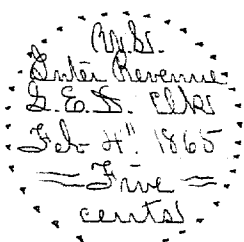 U.S.
Inter Revenue
D.E.D. Clks
Feb 4" 1865
Five
cents